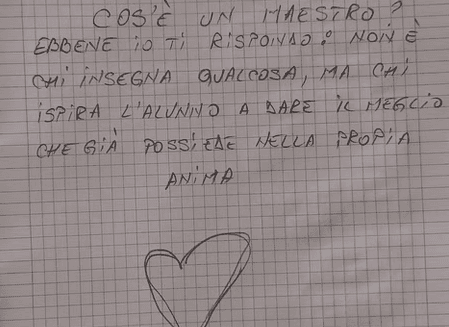 COS'È UN MAESTRO?
EBBENE iO Ti RISPONDO: NON È
CHI iNSEGNA QUALCOSA, MA CHi
iSPiRA L'ALUNNO A DARE iL MEGLiO
CHE GiÀ POSSiEDE NELLA PROPiA
ANiMA